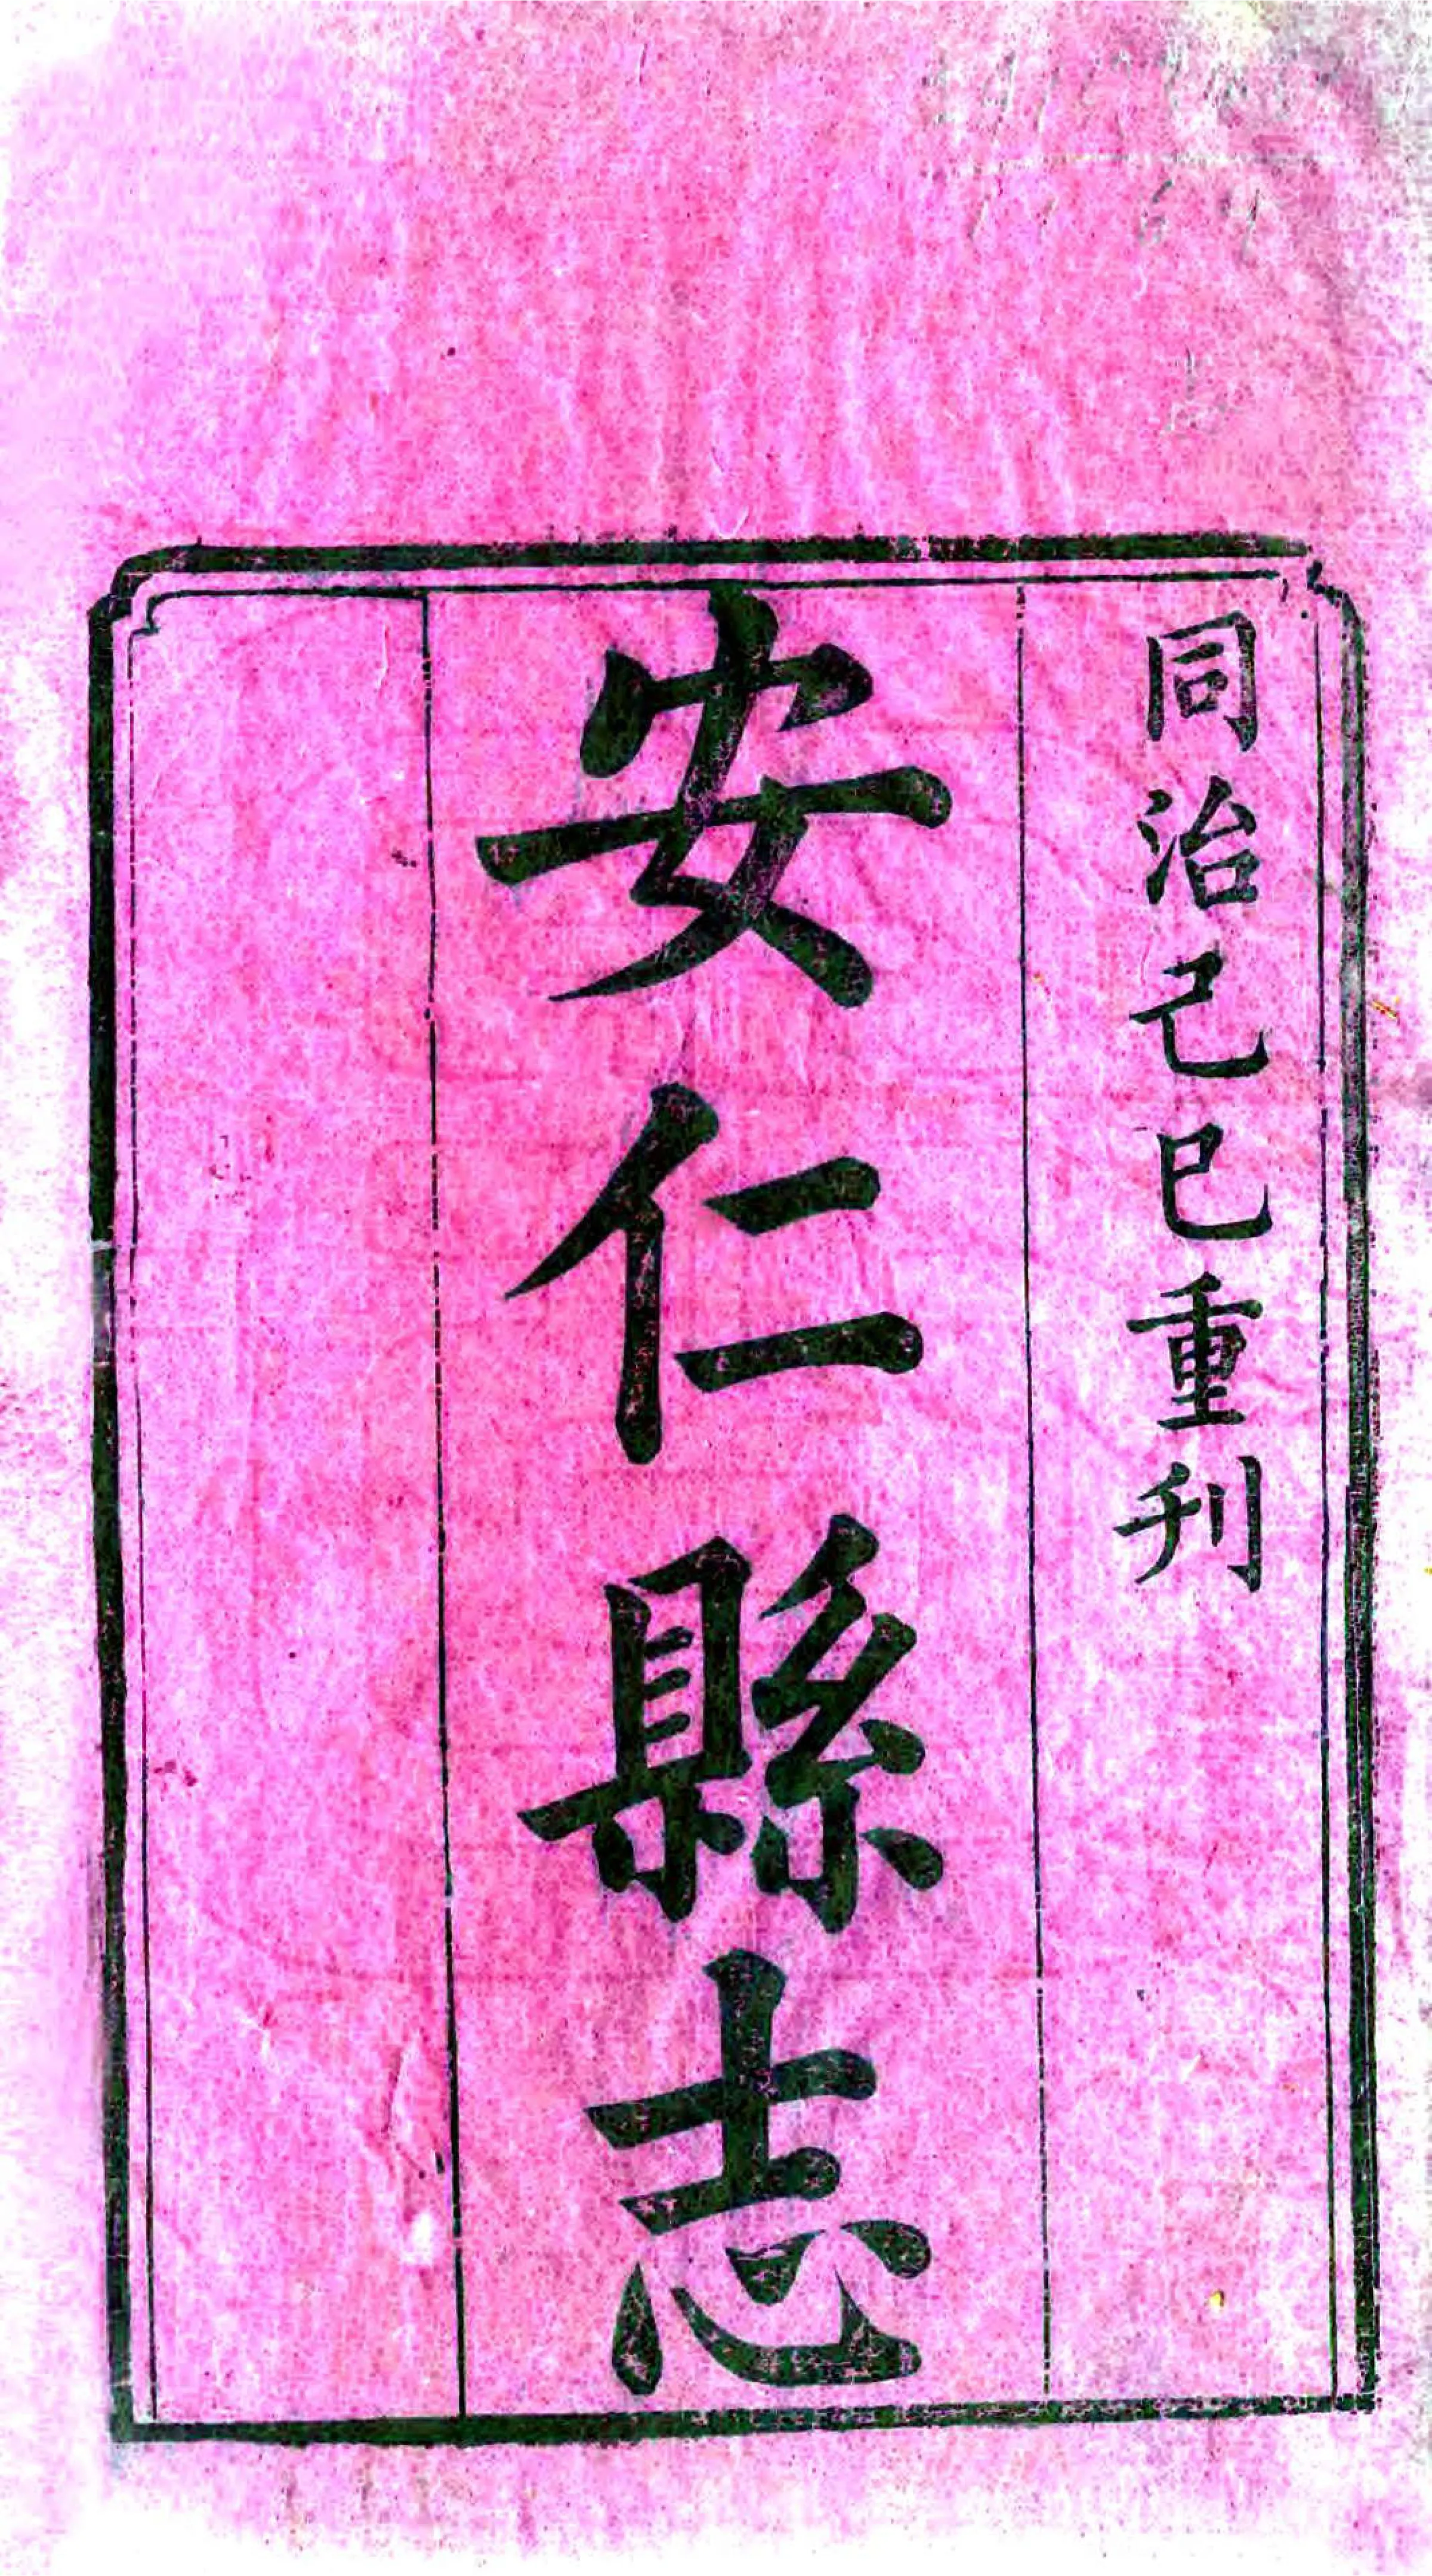 同治己巳重刊
安仁縣志